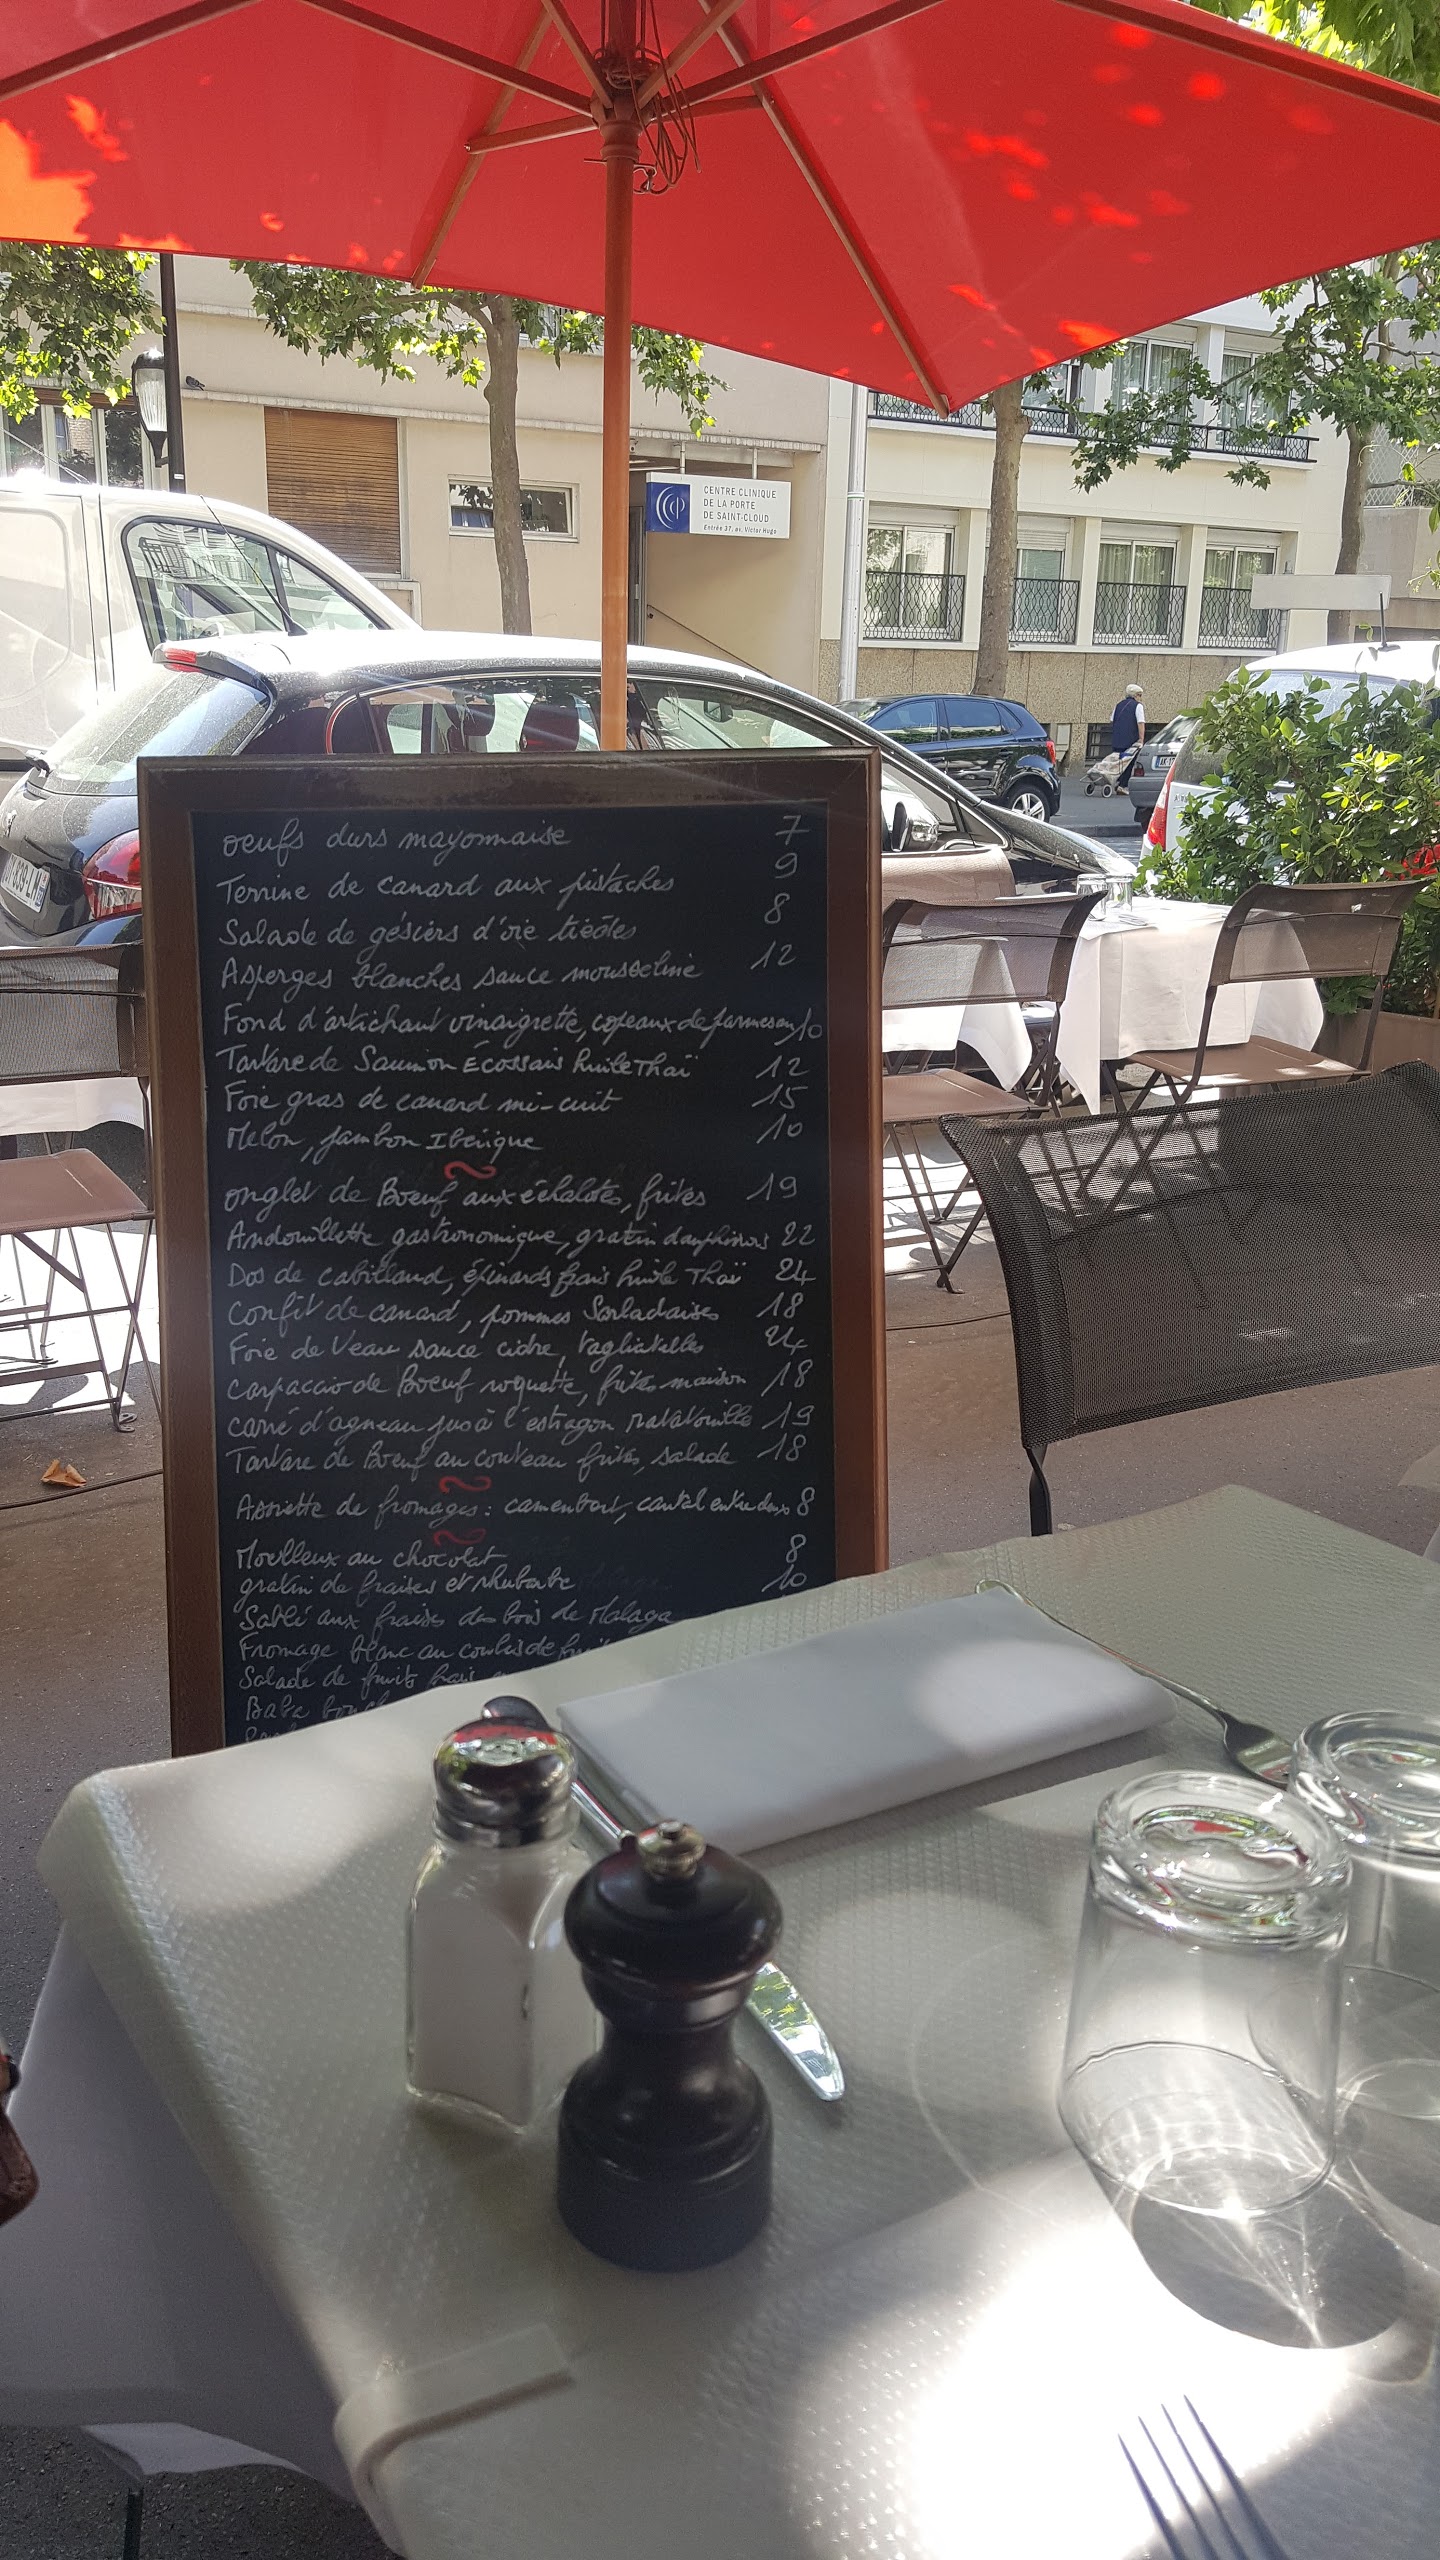 CENTRE CLINIQUE
DE LA PORTE
DE SAINT-CLOUD
Entrée 37, av. Victor Hugo
oeufs durs mayonnaise 7
Terrine de canard aux pistaches 9
Salade de gésiers d'oie tièdes 8
Asperges blanches sauce mousseline 12
Fond d'artichaut vinaigrette, copeaux de parmesan 10
Tartare de Saumon Écossais huile Thaï 12
Foie gras de canard mi-cuit 15
Melon, jambon Ibérique 10
onglet de Boeuf aux échalotes, frites 19
Andouillette gastronomique, gratin dauphinois 22
Dos de cabillaud, épinards frais huile Thaï 24
Confit de canard, pommes Sarladaises 18
Foie de Veau sauce cidre, tagliatelles 24
Carpaccio de Boeuf roquette, frites maison 18
carré d'agneau jus à l'estragon ratatouille 19
Tartare de Boeuf au couteau frites, salade 18
Assiette de fromages : camembert, cantal entre deux 8
Moelleux au chocolat 8
gratin de fraises et rhubarbe 10
Sablé aux fraises des bois de Malaga
Fromage blanc au coulis de
Salade de fruits frais
Baba